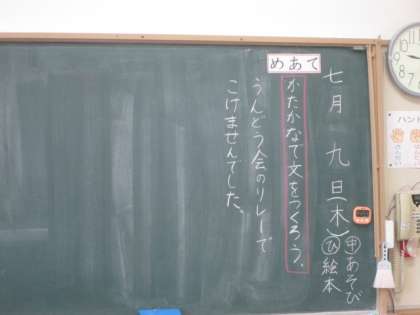 七月 九日(木)
㊥あそび
絵本
めあて
かたかなで文をつくろう。
うんどう会のリレーで
こけませんでした。
ハンド